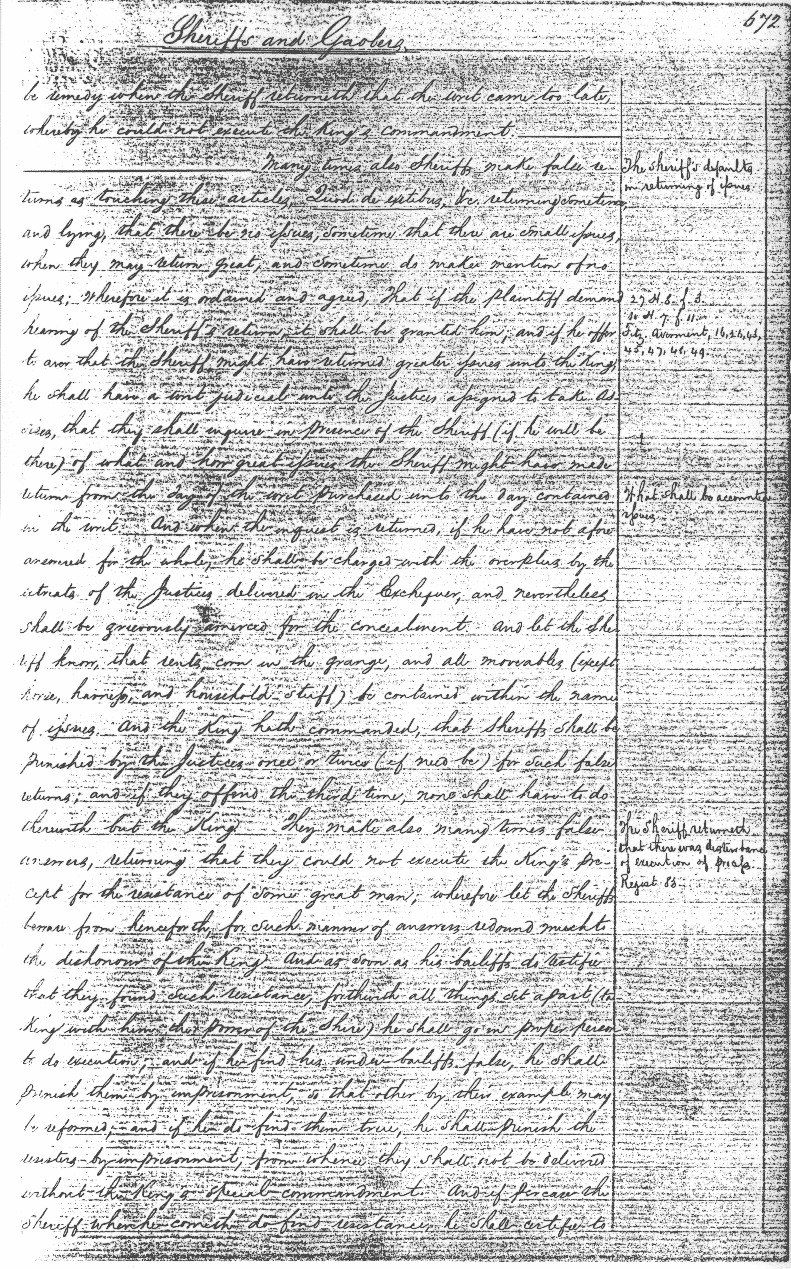 672
Sheriffs and Gaolers
be remedy when the Sheriff returneth that the writ came too late,
whereby he could not execute the King's commandment
Many times also Sheriffs make false re-
turns as touching these articles, Quod de exitibus, &c. returning sometime,
and lying, that there be no issues, sometime that there are small issues,
when they may return great, and sometime do make mention of no
issues; wherefore it is ordained and agreed, That if the plaintiff demand
hearing of the Sheriff's return, it shall be granted him; and if he offer
to aver that the Sheriff might have returned greater issues unto the King,
he shall have a writ judicial unto the Justices assigned to take As-
sizes, that they shall inquire in presence of the Sheriff (if he will be
there) of what and how great issues the Sheriff might have made
return from the day of the writ purchased unto the day contained
in the writ. And when the inquest is returned, if he have not afore
answered for the whole, he shall be charged with the overplus by the
estreats of the Justices delivered in the Exchequer, and nevertheless
shall be grievously amerced for the concealment. And let the She-
riff know, that rents, corn in the grange, and all moveables (except
horse, harness, and household stuff) be contained within the name
of issues. And the King hath commanded, that Sheriffs shall be
punished by the Justices once or twice (if need be) for such false
returns; and if they offend the third time, none shall have to do
therewith but the King. They make also many times false
answers, returning that they could not execute the King's pre-
cept for the resistance of some great man; wherefore let the Sheriffs
beware from henceforth, for such manner of answers redound much to
the dishonour of the King. And as soon as his bailiffs do testifie
that they found such resistance, forthwith all things set apart (ta
King with him the power of the Shire) he shall go in proper person
to do execution; and if he find his under-bailiffs false, he shall
punish them by imprisonment, so that other by their example may
be reformed; and if he do find them true, he shall punish the
resisters by imprisonment, from whence they shall not be delivered
without the King's special commandment. And if percase the
Sheriff when he cometh do find resistance, he shall certifie to
The sheriff's defaults
in returning of issues
27 H. 8. f. 3.
10 H. 7. f. 11.
Fitz. Averment, 16,
45, 47, 48, 49.
What shall be accounted
issues
The Sheriff returneth
that there was disturbance
of execution of process
Regist 83